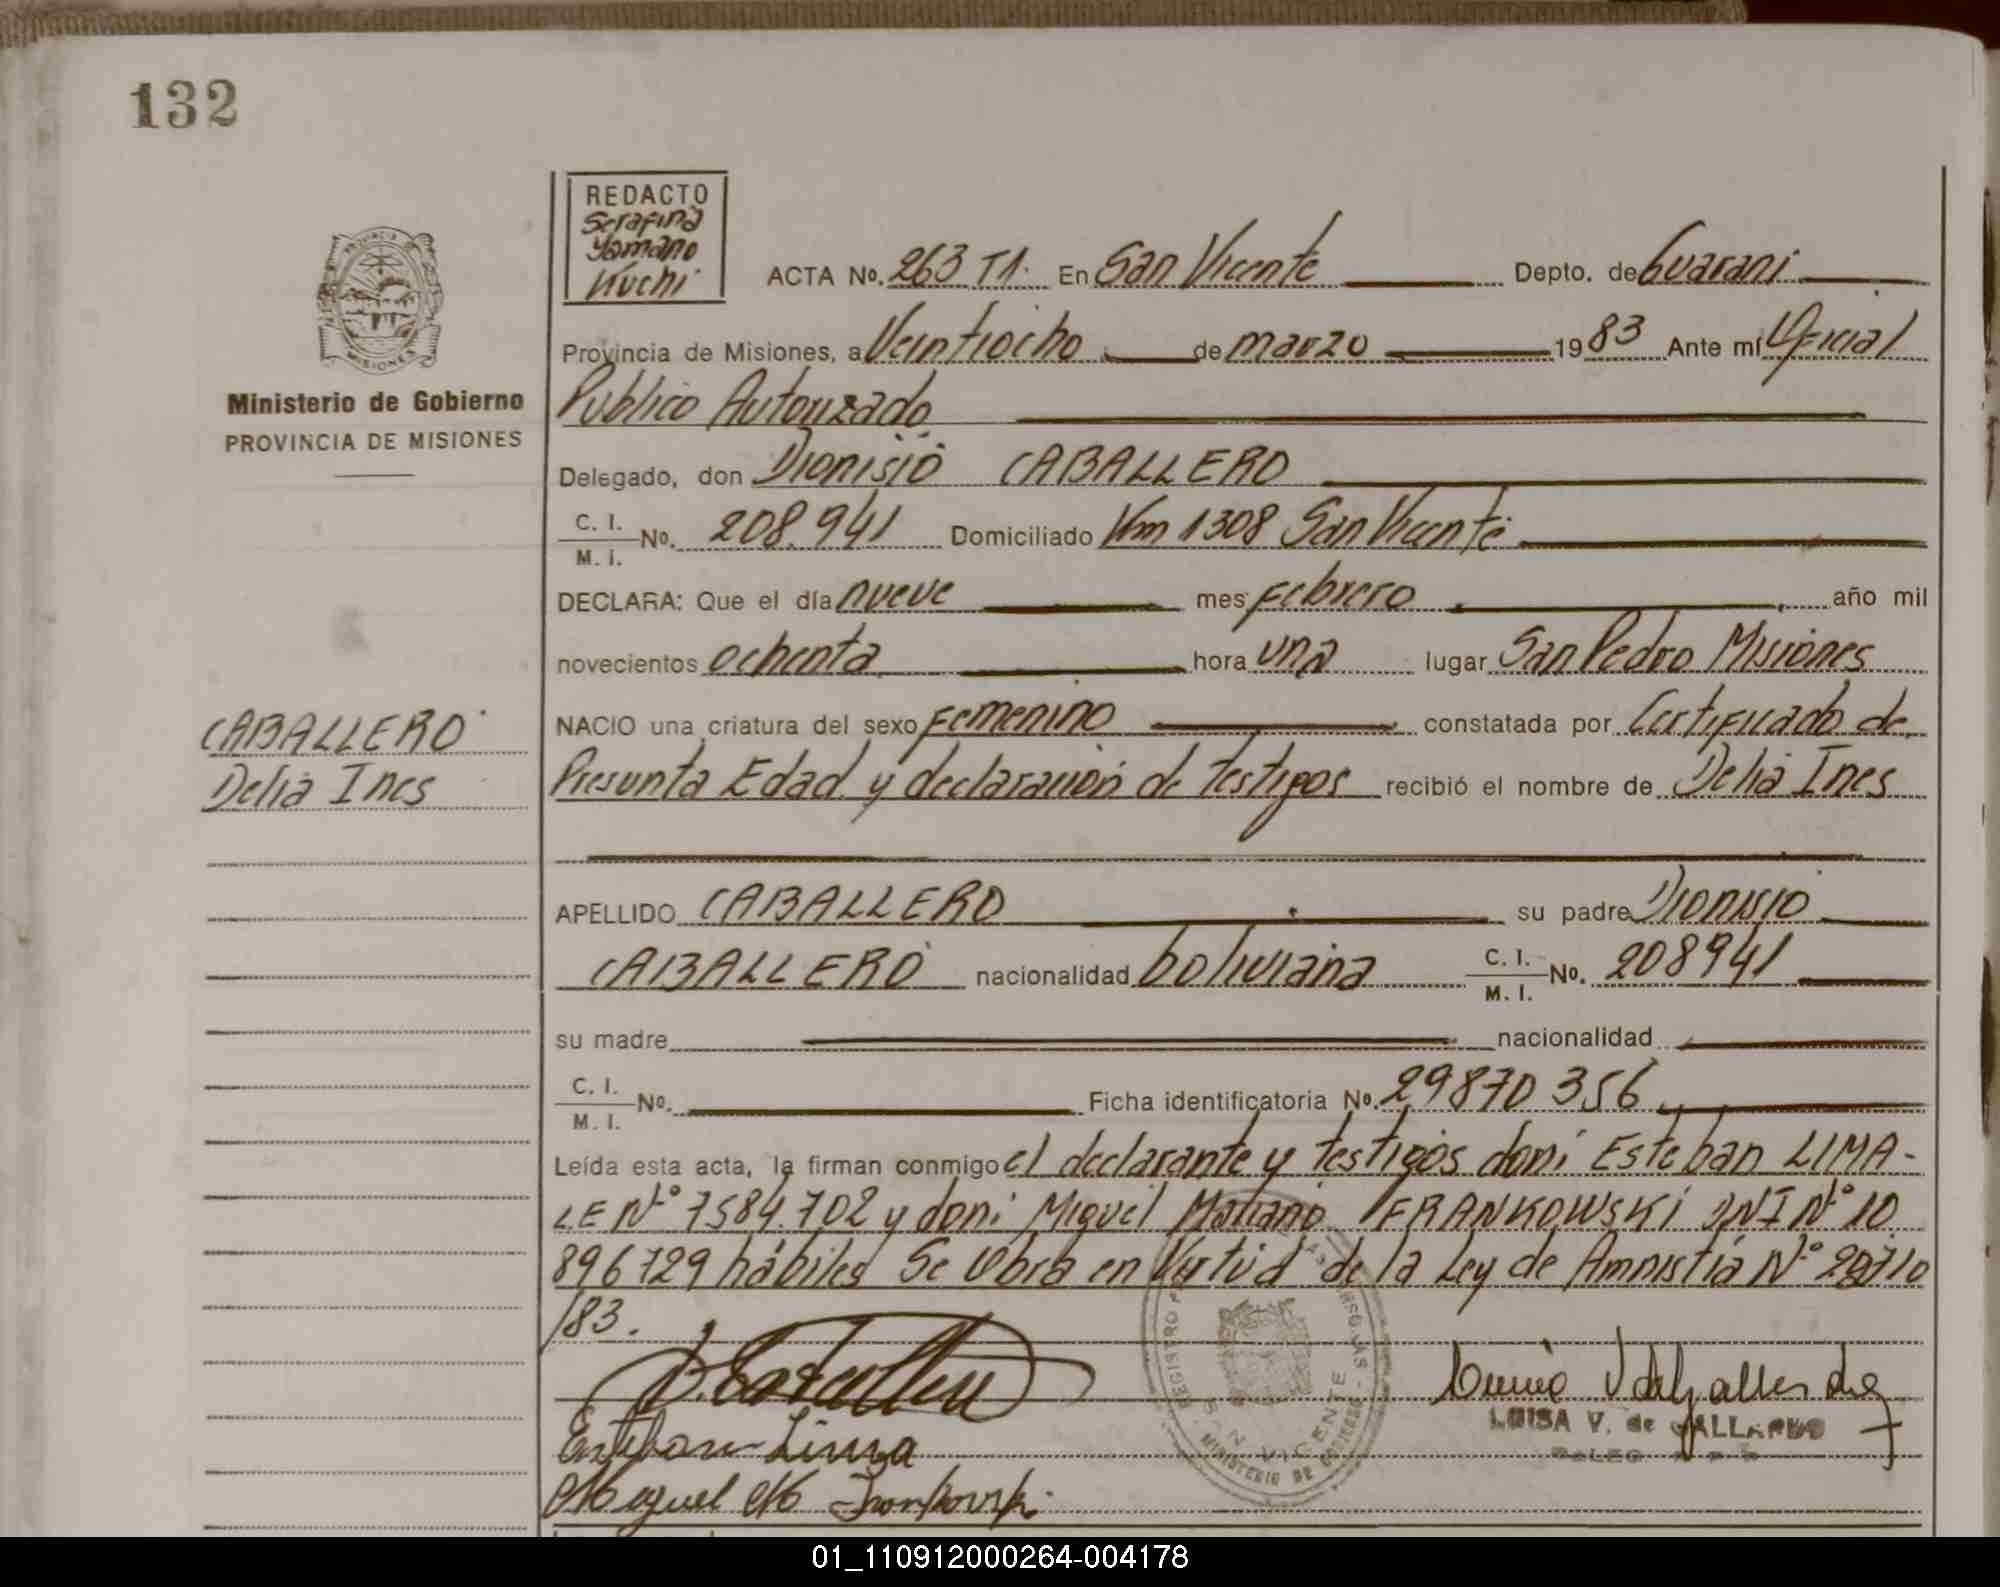 132
REDACTO
Serafina
Yamano
Kuchi
ACTA No. 263 T1. En San Vicente Depto. de Guarani
Provincia de Misiones, a Veintiocho de marzo 1983 Ante mí Oficial
Publico Autorizado
Ministerio de Gobierno
PROVINCIA DE MISIONES
Delegado, don Dionisio CABALLERO
C. I.
M. I.
No. 208.941 Domiciliado Km 1308 San Vicente
DECLARA: Que el día nueve mes febrero año mil
novecientos ochenta hora una lugar San Pedro Misiones
CABALLERO
Delia Ines
NACIO una criatura del sexo Femenino constatada por Certificado de
Presunta Edad y declaración de testigos recibió el nombre de Delia Ines
APELLIDO CABALLERO su padre Dionisio
CABALLERO nacionalidad boliviana C. I.
M. I.
No. 208941
su madre nacionalidad
C. I.
M. I.
No. Ficha identificatoria No. 29870356
Leída esta acta, la firman conmigo el declarante y testigos don: Esteban LIMA-
LE Nº 7584.702 y don: Miguel Mariano FRANKOWSKI DNI Nº 10
896729 hábiles Se Obra en Virtud de la Ley de Amnistia Nº
/83.
Esteban Lima
LUISA V. de GALLARDO
SAN VICENTE
MINISTERIO DE GOBIERNO
01_110912000264-004178